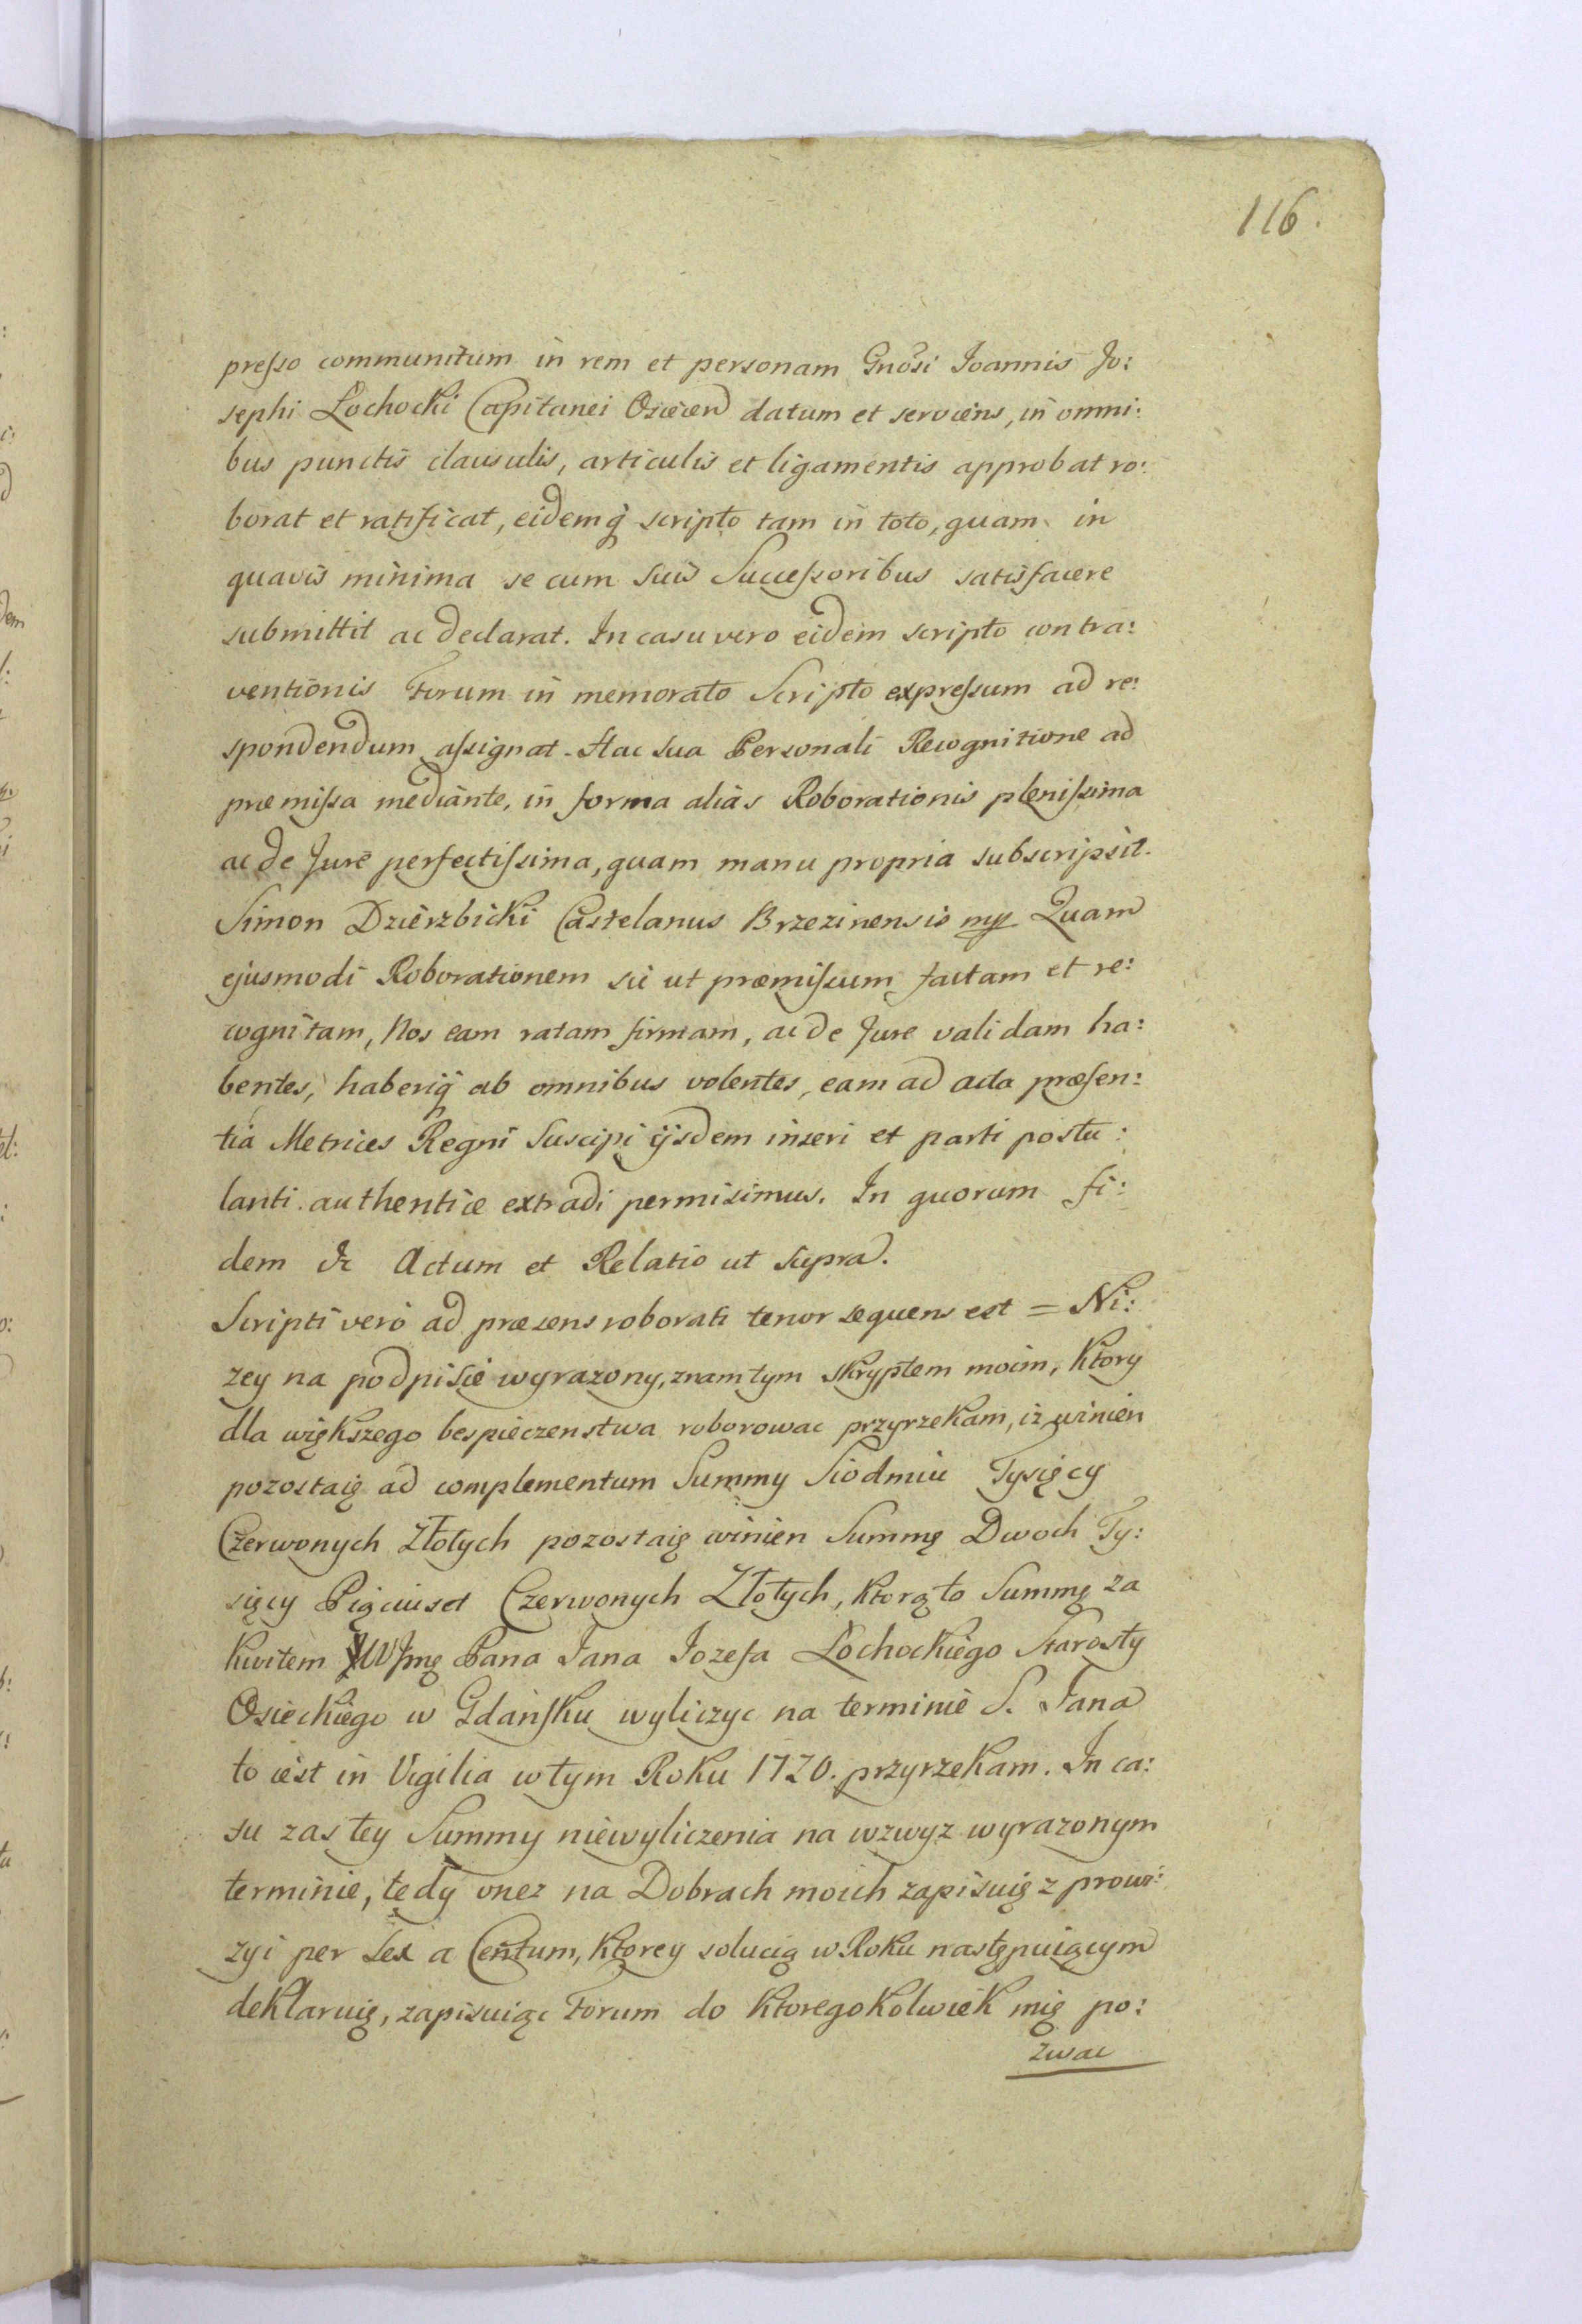 116.
preſso communitum in rem et personam Gnõsi Joannis Jo:
sephi Łochocki Capitanei Osiecen datum et serviens, in omni:
bus punctis clausulis, articulis et ligamentis approbat ro:
borat et ratificat, eidemq́ scripto tam in toto, quam in
quavis minima se cum suis Succeſsoribus satisfacere
submittit ac declarat. In casu vero eidem scripto contra:
ventionis Forum in memorato Scripto expreſsum ad re:
spondendum aſsignat. Hac sua Personali Recognitione ad
præmiſsa mediante, in forma alias Roborationis pleniſsima
ac de Jure perfectiſsima, quam manu propria subscripsit.
Simon Dzierzbicki Castelanus Brzezinensis mp Quam
ejusmodi Roborationem sic ut præmiſsum factam et re:
cognitam, Nos eam ratam firmam, ac de Jure validam ha:
bentes, haberiq́ ab omnibus volentes, eam ad acta præsen:
tia Metrices Regni Suscipi ijsdem inseri et parti postu:
lanti authentice extradi permisimus. In quorum fi:
dem &c Actum et Relatio ut supra.
Scripti vero ad præsens roborati tenor sequens est = Ni:
zey na podpisie wyrazony, znam tym skryptem moim, Ktory
dla większego bespieczenstwa roborowac przyrzekam, iz winien
pozostaię ad complementum Summy Siodmiu Tysięcy
Czerwonych Złotych pozostaię winien Summę Dwoch Ty:
sięcy Pięciuset Czerwonych Złotych, Ktorą to Summę za
Kwitem WJmę Pana Jana Jozefa Łochockiego Starosty
Osieckiego w Gdańsku wyliczyc na terminie S. Jana
to iest in Vigilia w tym Roku 1720. przyrzekam. In ca:
su zas tey Summy niewyliczenia na wzwyz wyrazonym
terminie, tedy onez na Dobrach moich zapisuię z prowi:
zyi per Sex a Centum, Ktorey solucią w Roku następuiącym
deklaruię, zapisuiąc Forum do Ktoregokolwiek mię po:
zwac